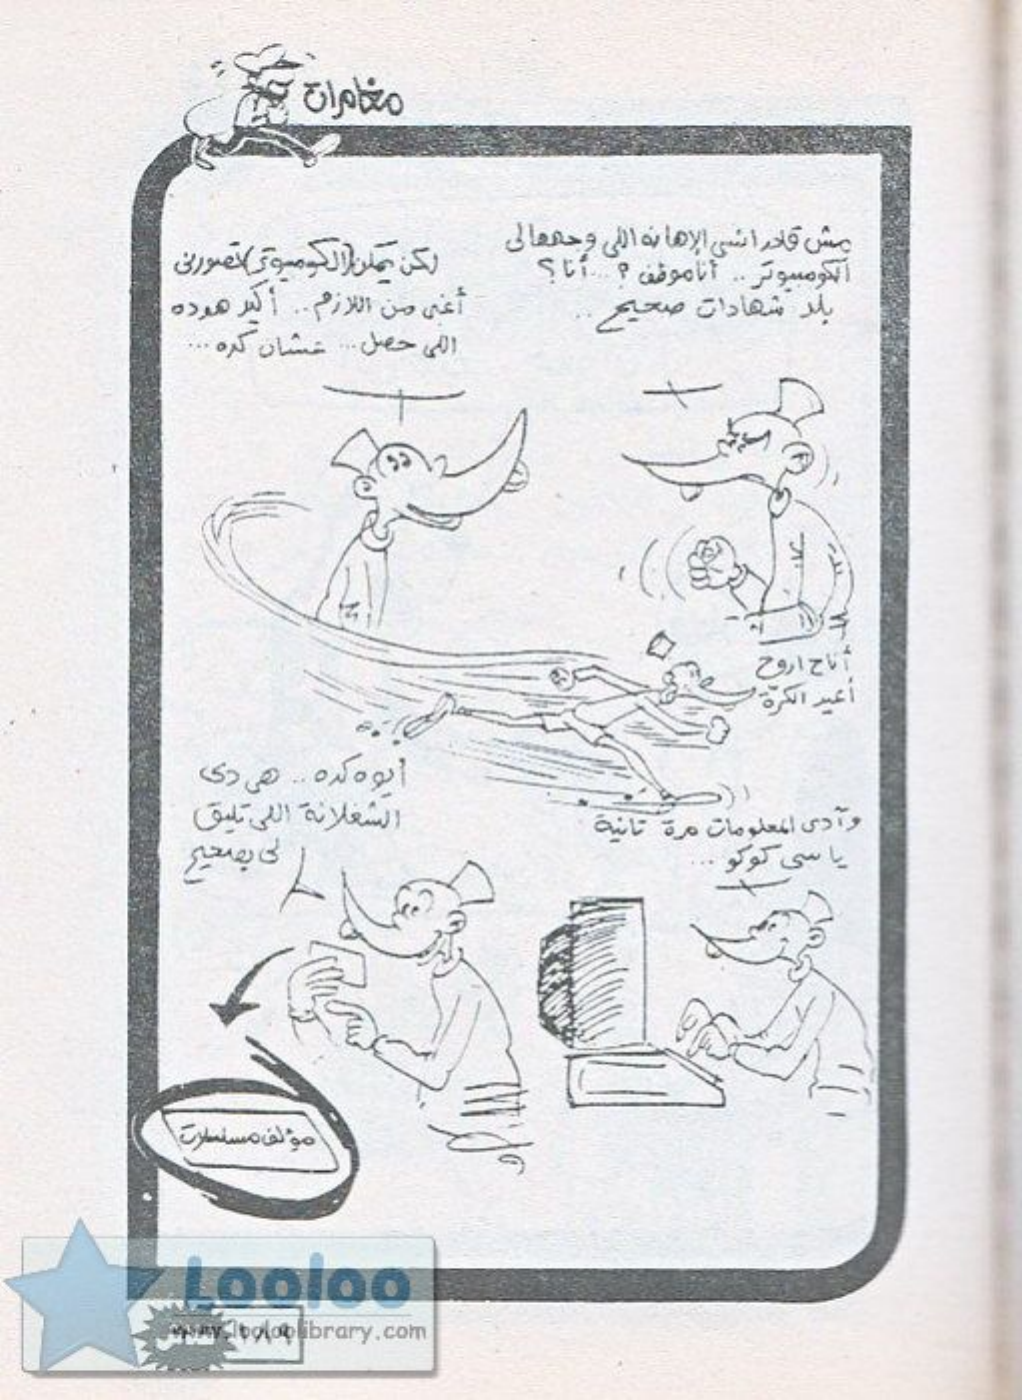 مغامرات
مش قادر انسى الإهانه اللى وجهها لى
الكومبيوتر .. أنا موظف ؟ ... أنا ؟
بلد شهادات صحيح ..
لكن يمكن (الكومبيوتر) تصورنى
أغبى من اللازم .. أكيد هوده
اللى حصل ... عشان كده ...
أنا ح اروح
أعيد الكرّة
وآدى المعلومات مرة تانية
يا سى كوكو ...
أيوه كده .. هى دى
الشغلانة اللى تليق
لى بصحيح
مؤلف مسلسلات
Looloo
www.looloolibrary.com
١٨٩